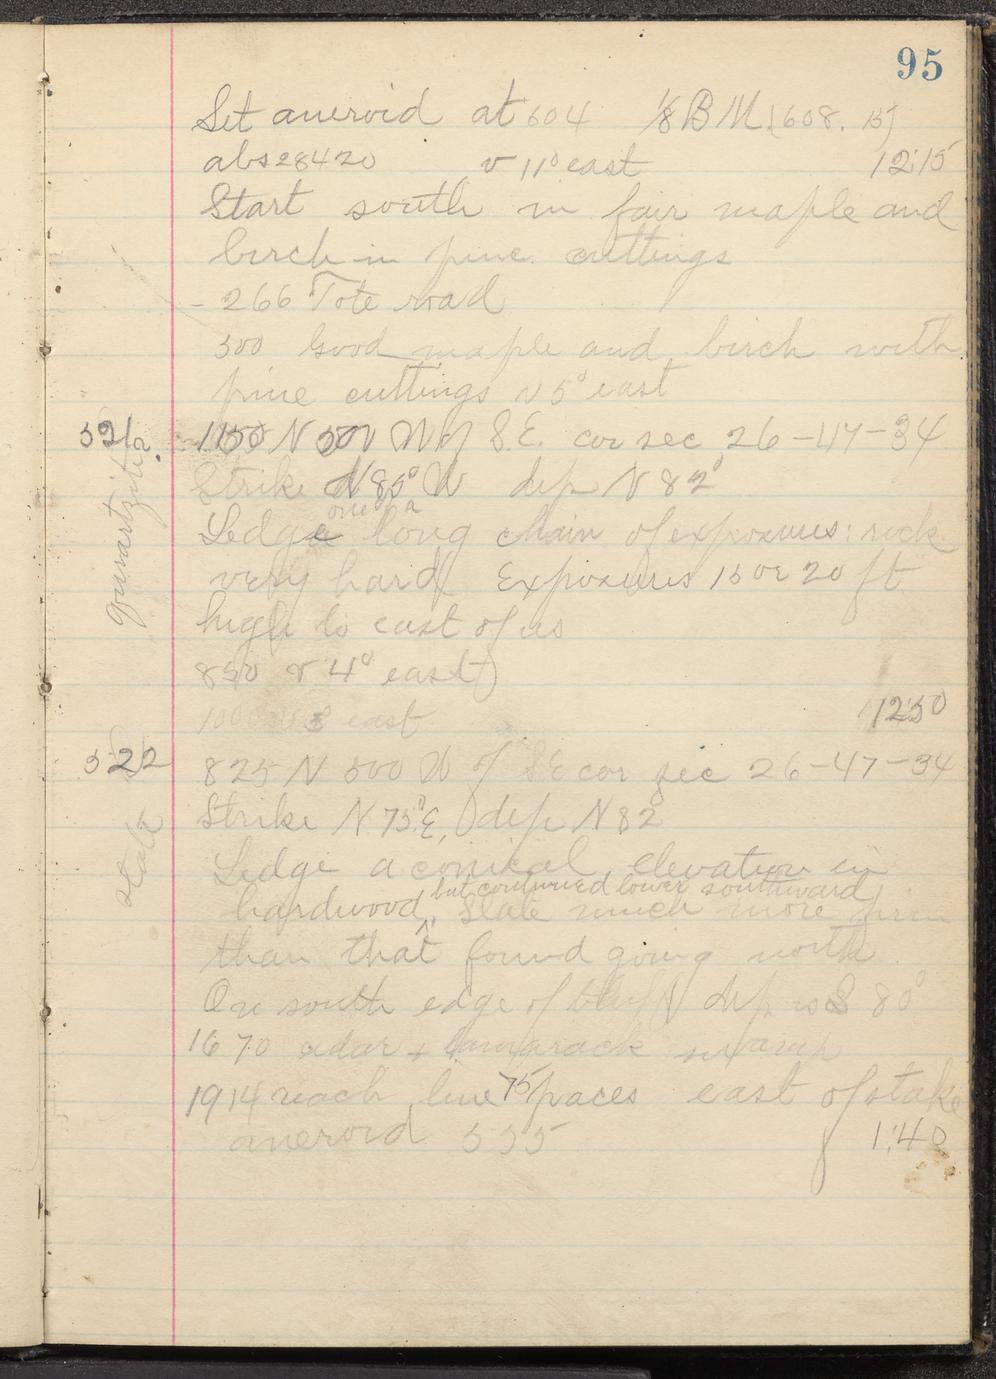 95
Set aneroid at 604 1/8 B M. (608. 15)
abs 28420 v 11° east 12:15
Start south in fair maple and
birch in pine cuttings
- 266 Tote road
500 Good maple and birch with
pine cuttings v 5° east
521 1150 N 500 W of S.E. cor sec 26-47-34
quartzite?
Strike N 85° W dip N 82°
Ledge one a long chain of exposures: rock
very hard Exposures 15 or 20 ft
high to east of us
850 v 4° east)
1000 v 3 east 12:50
522 825 N 500 W of S E cor sec 26-47-34
slate
Strike N 75° E, dip N 82
Ledge a conical elevation in
but continued lower southward
hardwood, Slate much more firm
than that found going north
On south edge of bluff dip is S 80°
1670 cedar + tamarack swamp
1914 reach line 75 paces east of stake
aneroid 555 1:40